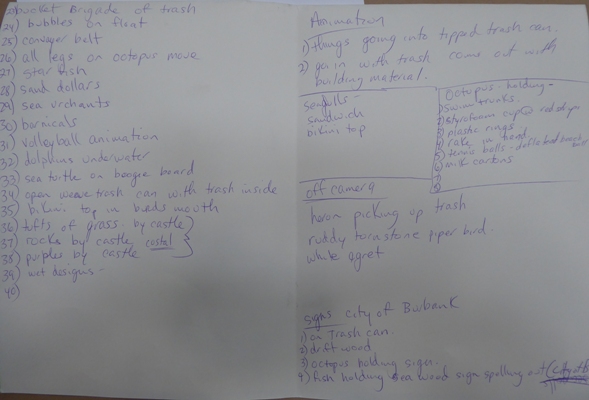 bucket Brigade of trash
24) bubbles on float
25) conveyer belt
26) all legs on octopus move
27) star fish
28) sand dollars
29) sea urchants
30) barnicals
31) volleyball animation
32) dolphins underwater
33) sea turtle on boogie board
34) open weave trash can with trash inside
35) bikini top in birds mouth
36) tufts of grass by castle
37) rocks by castle costal
38) purples by castle
39) net designs -
40)
Animation
1) things going into tipped trash can.
2) go in with trash come out with
building material.
seagulls -
sandwich
bikini top
Octopus - holding -
1) swim trunks.
2) styrofoam cup
3) plastic rings -
4) rake in hand
5) tennis balls -
6) milk cartons
7)
8)
off camera
heron picking up trash
ruddy turnstone piper bird.
white egret
signs city of Burbank
1) on Trash can.
2) drift wood
3) octopus holding sign.
4) fish holding sea weed sign spelling out (city of b